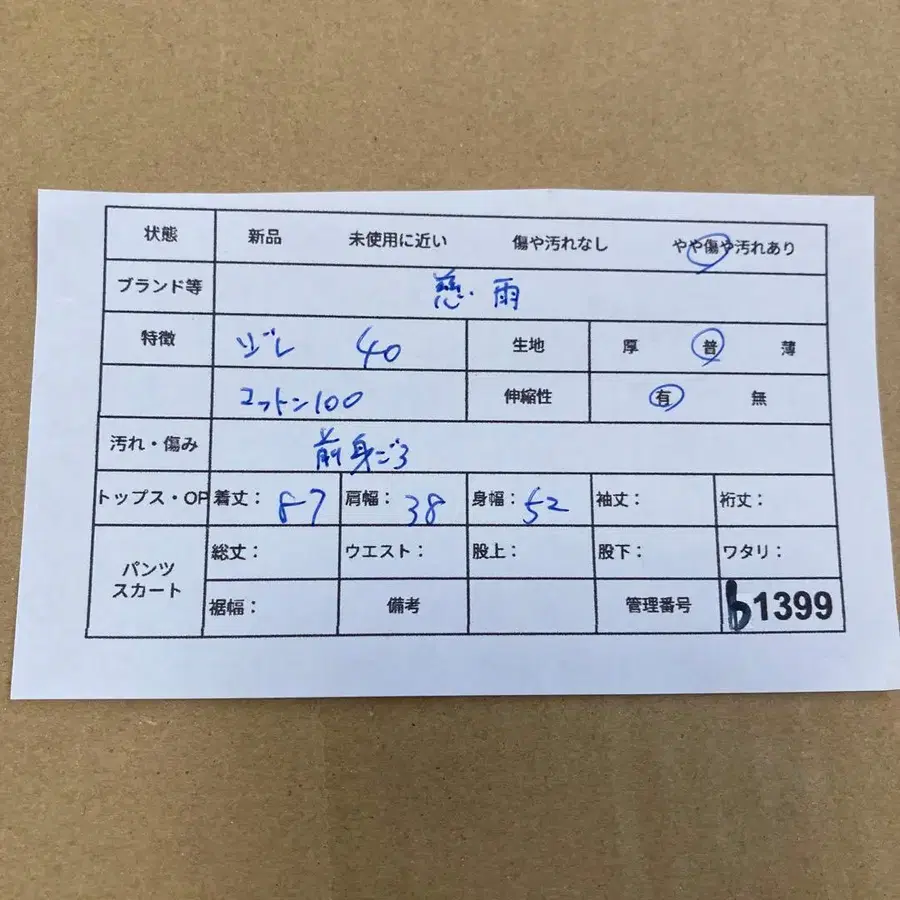 状態 新品 未使用に近い 傷や汚れなし やや傷や汚れあり
ブランド等 慈雨
特徴 40 生地 厚 普 薄
コットン100 伸縮性 有 無
汚れ・傷み 前身ごろ
トップス・OP 着丈: 87 肩幅: 38 身幅: 52 袖丈: 裄丈:
パンツ スカート 総丈: ウエスト: 股上: 股下: ワタリ:
裾幅: 備考 管理番号 b1399